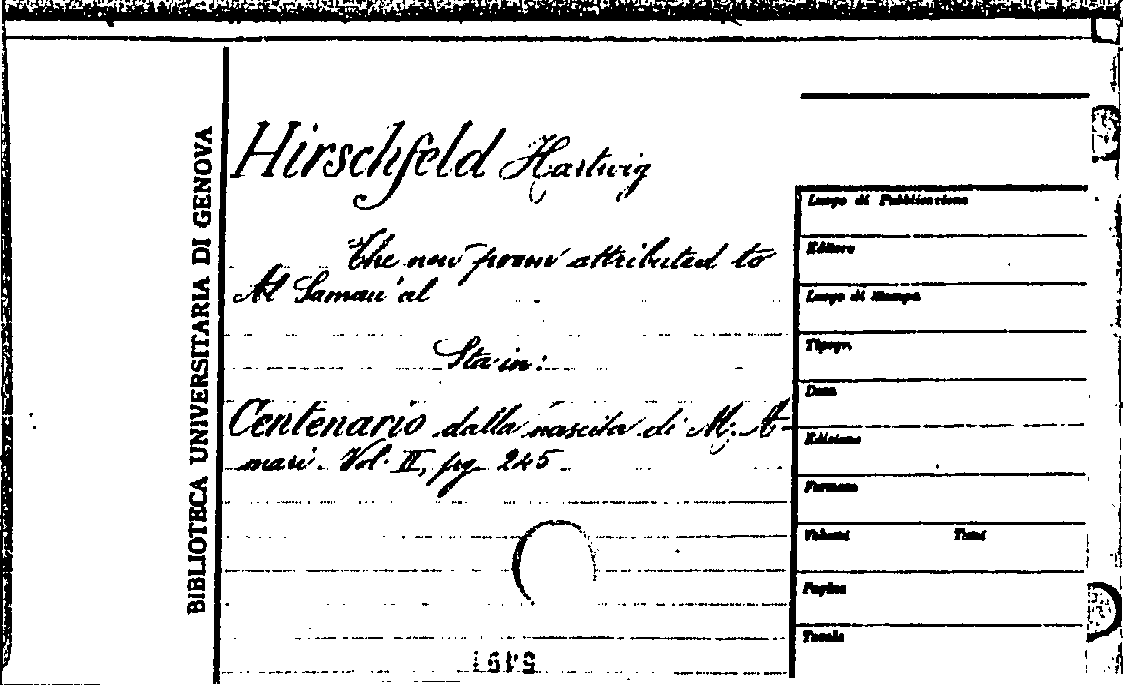 BIBLIOTECA UNIVERSITARIA DI GENOVA
Hirschfeld Hartwig
The new poem attributed to
Al Samau'al
Sta in:
Centenario dalla nascita di M. A-
mari. Vol. II, pg 245.
Luogo di Pubblicazione
Editore
Luogo di Stampa
Tipogr.
Data
Edizione
Formato
Volumi Tomi
Pagine
Tavole